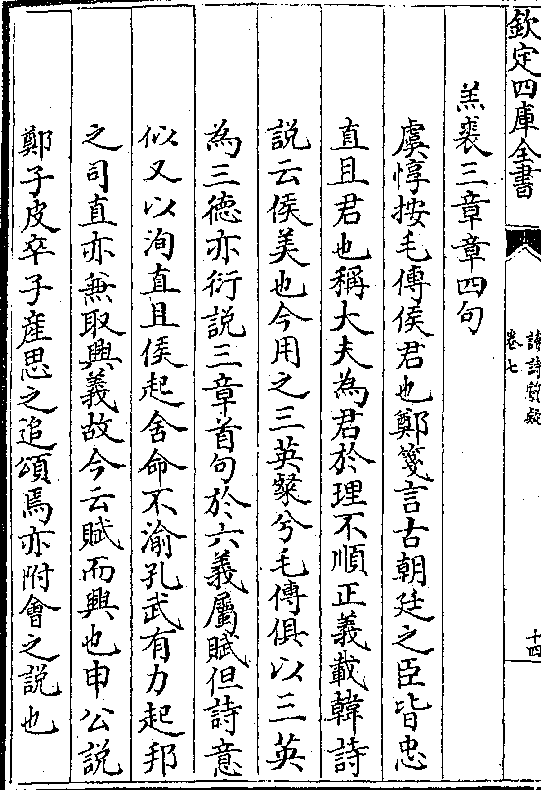 欽定四庫全書
讀詩質疑
卷七
十四
羔裘三章章四句
虞惇按毛傳侯君也鄭箋言古朝廷之臣皆忠
直且君也稱大夫為君於理不順正義載韓詩
說云侯美也今用之三英粲兮毛傳俱以三英
為三德亦衍說三章首句於六義屬賦但詩意
似又以洵直且侯起舍命不渝孔武有力起邦
之司直亦兼取興義故今云賦而興也申公說
鄭子皮卒子產思之追頌焉亦附會之說也